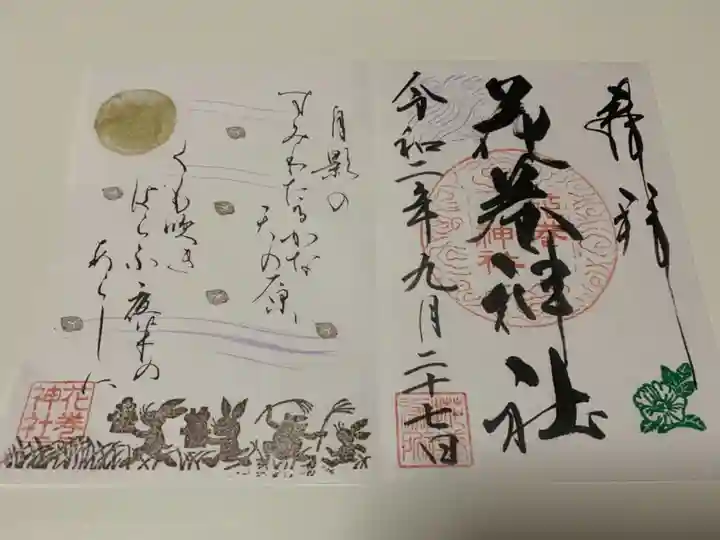 奉拝
花巻神社
令和二年九月二十七日
花巻
神社
月影の
すみわたるかな
天の原
くも吹き
はらふ 夜半の
あらしに
花巻
神社